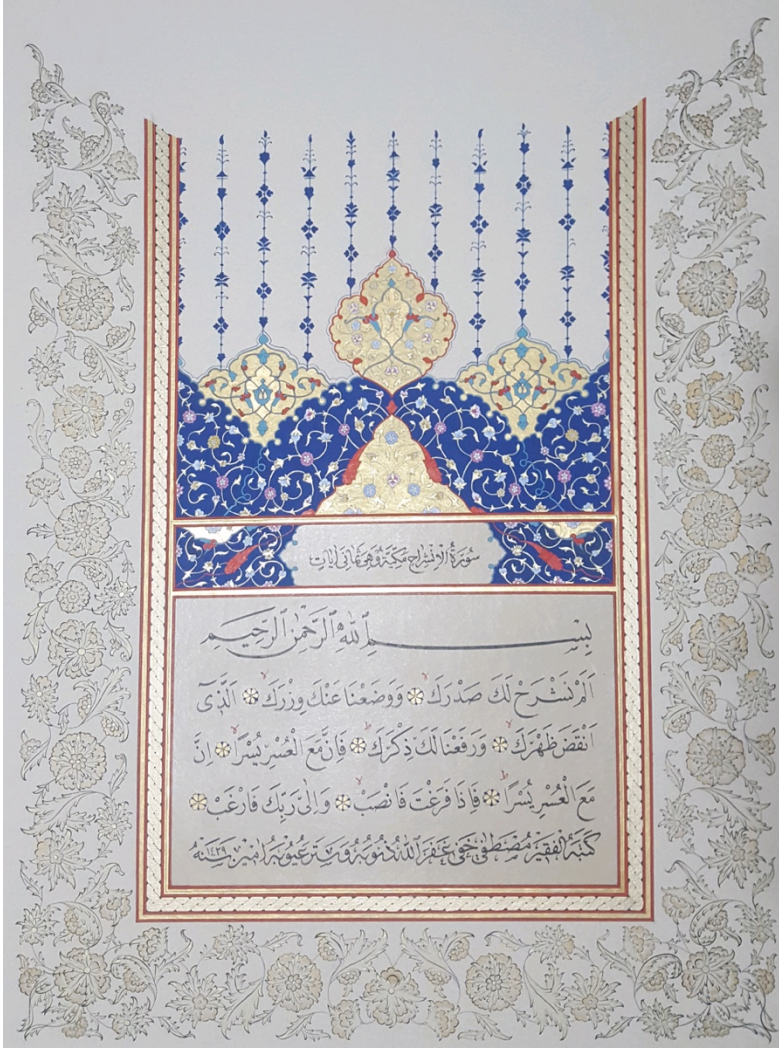 سُورَةُ الْاِنْشِرَاحِ مَكِّيَّةٌ وَهِىَ ثَمَانِى اٰيَاتٍ
بِسْمِ اللّٰهِ الرَّحْمٰنِ الرَّحِيمِ
اَلَمْ نَشْرَحْ لَكَ صَدْرَكَ ۙ وَوَضَعْنَا عَنْكَ وِزْرَكَ ۙ اَلَّذِىٓ
اَنْقَضَ ظَهْرَكَ ۙ وَرَفَعْنَا لَكَ ذِكْرَكَ ۜ فَاِنَّ مَعَ الْعُسْرِ يُسْرًا ۙ اِنَّ
مَعَ الْعُسْرِ يُسْرًا ۜ فَاِذَا فَرَغْتَ فَانْصَبْ ۙ وَاِلٰى رَبِّكَ فَارْغَبْ
كتبه الفقير مصطفى غفر الله ذنوبه وستر عيوبه امين سنه ١٤٣٩